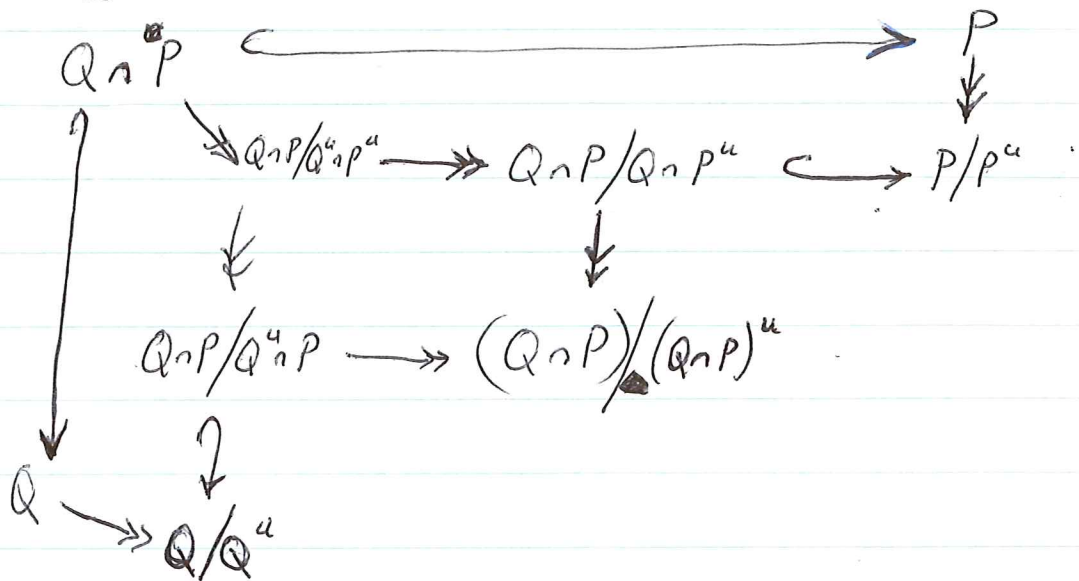 Q ∩ P ↪ P
Q∩P/Qᵘ∩Pᵘ ↠ Q∩P/Q∩Pᵘ ↪ P/Pᵘ
Q∩P/Qᵘ∩P ↠ (Q∩P)/(Q∩P)ᵘ
Q ↠ Q/Qᵘ